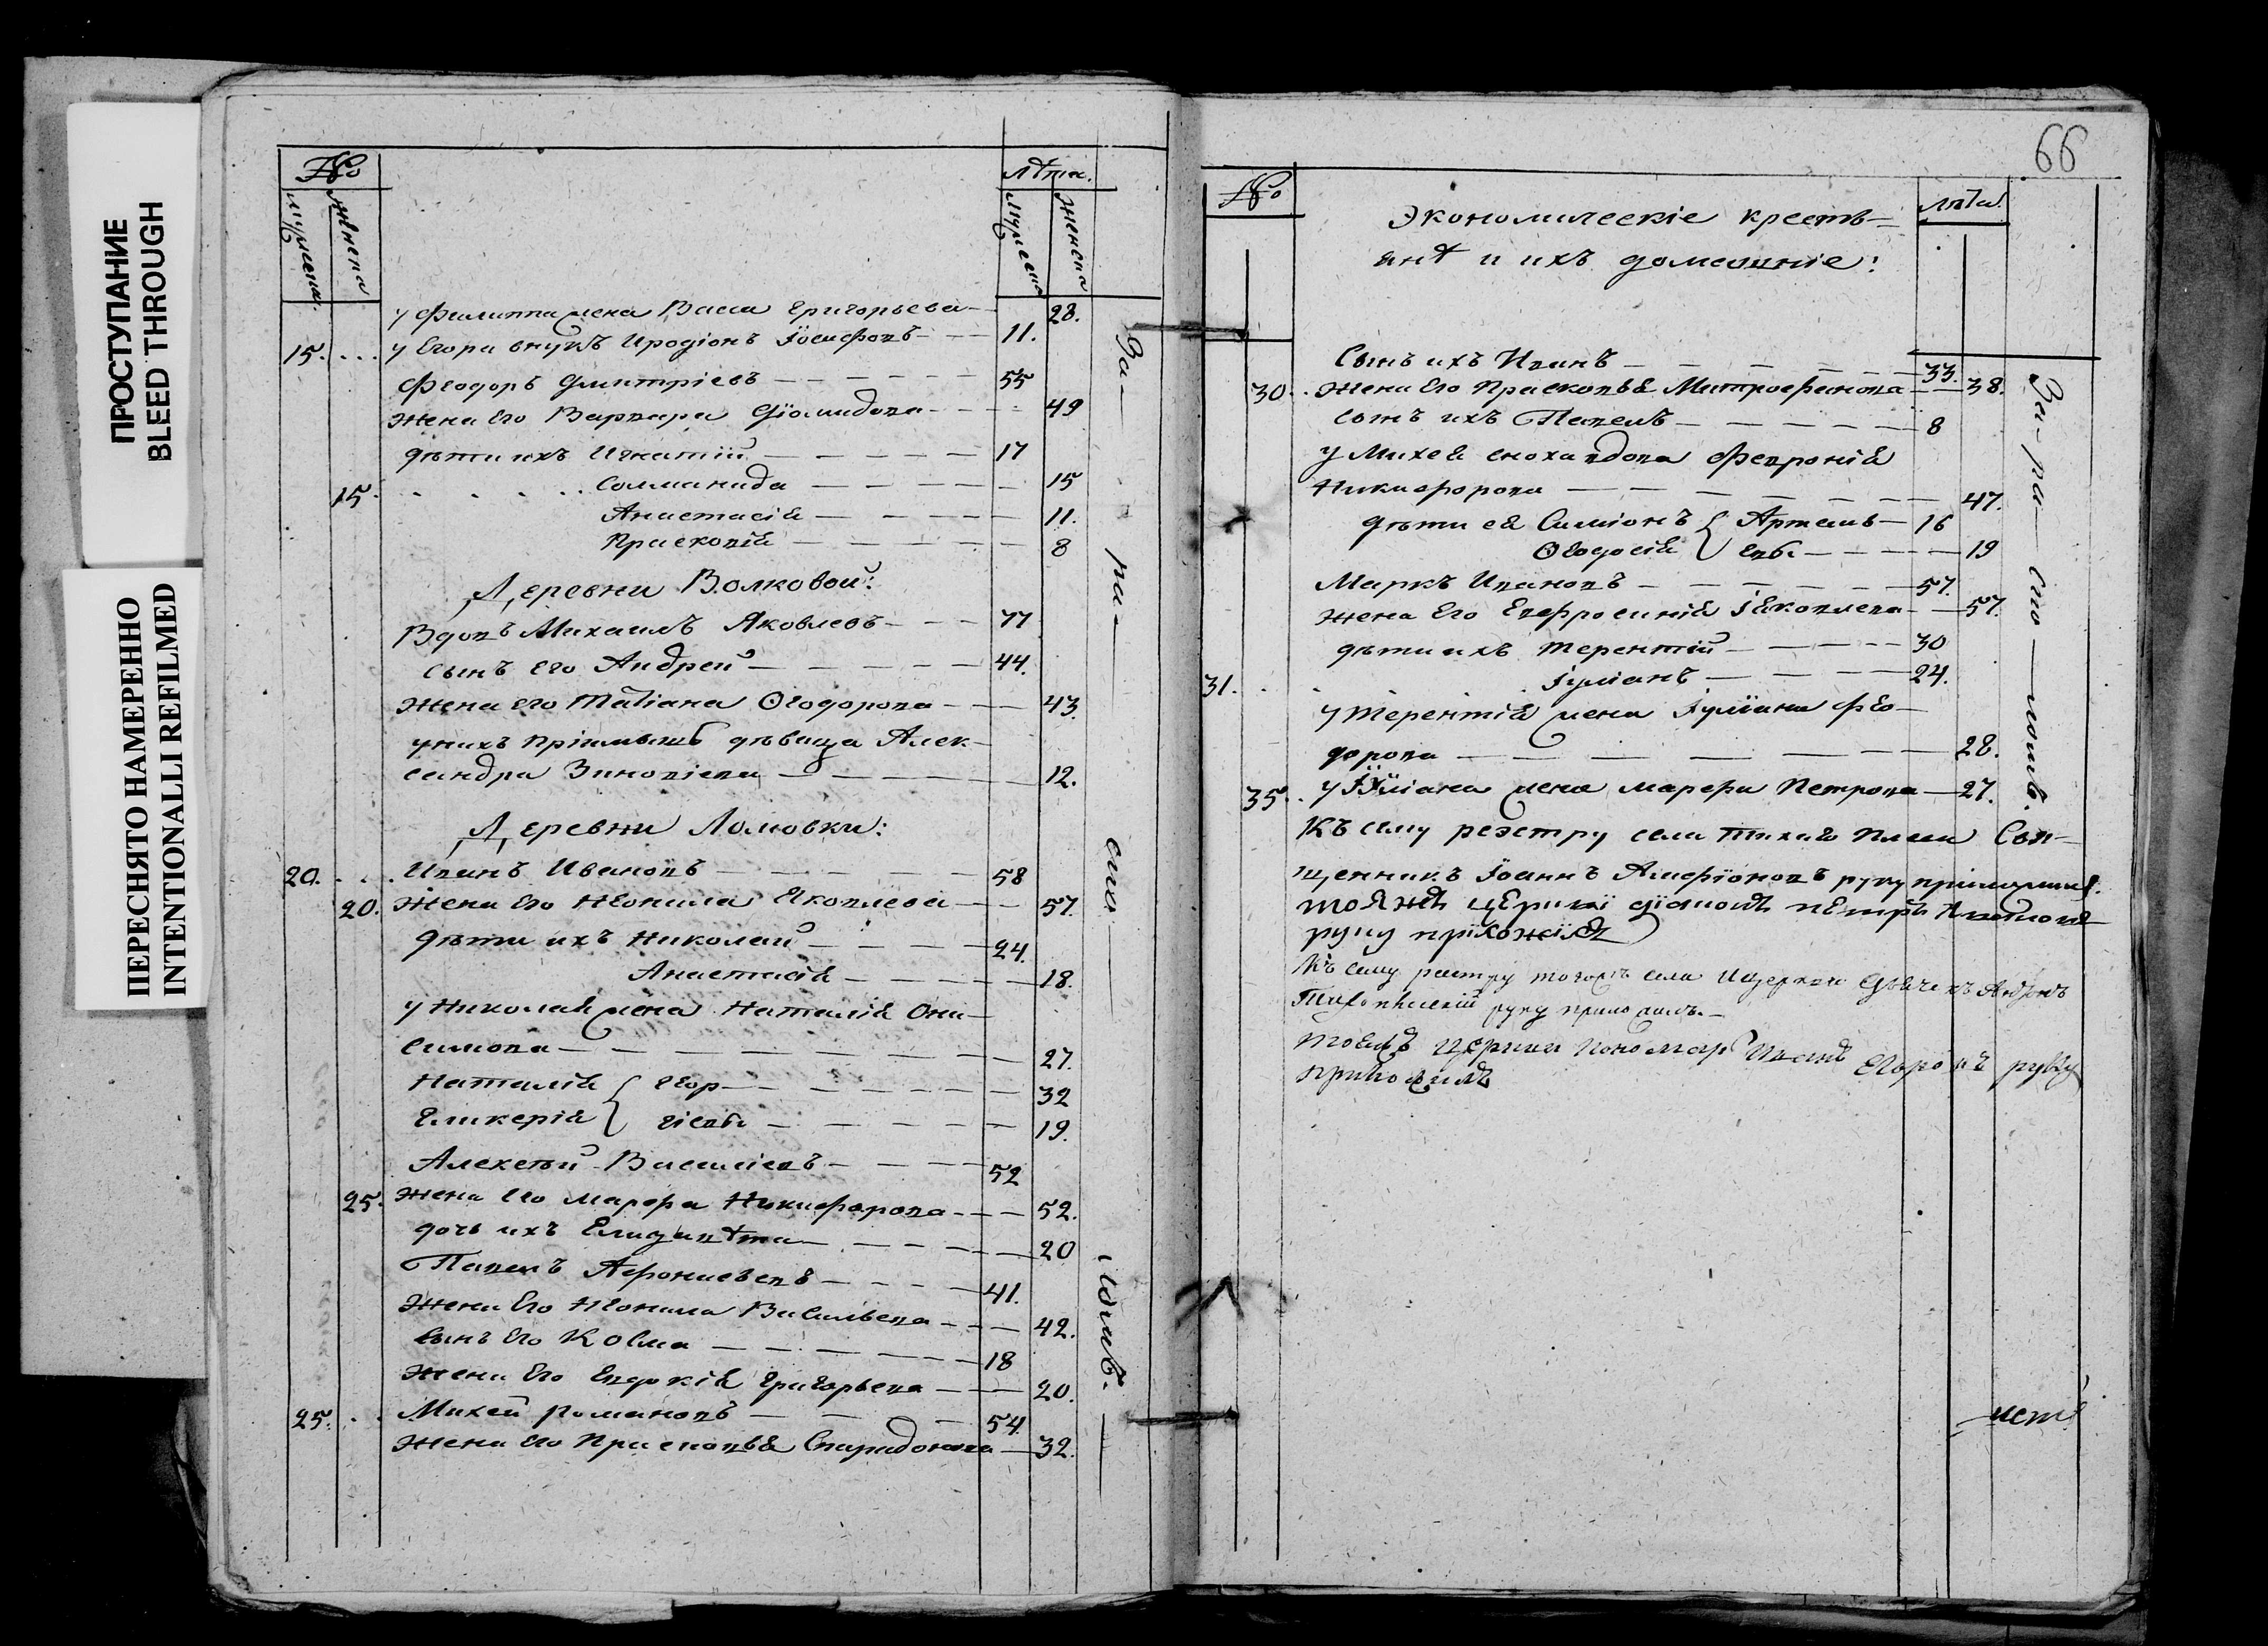 ПРОСТУПАНИЕ
BLEED THROUGH
ПЕРЕСНЯТО НАМЕРЕННО
INTENTIONALLI REFILMED
№
мужеска женска
лѣта.
мужеска женска
У Филиппа жена Васса Григорьева 28.
15. У Егора внукъ Иродіонъ Іосифовъ 11.
Феодоръ Дмитріевъ 55
жена его Варвара Діомидова 49
дѣти ихъ Игнатій 17
15. Соломанида 15
Анастасія 11.
Прасковія 8
Деревни Волковой:
Вдовъ Михаилъ Яковлевъ 77
сынъ его Андрей 44.
жена его Татіана Ѳеодорова 43.
у нихъ пріимышъ дѣвица Алек-
сандра Зиновіева 12.
Деревни Ломовки:
20. Иванъ Ивановъ 58
20. жена его Неонила Яковлева 57.
дѣти ихъ Николай 24.
Анастасія 18.
у Николая жена Наталія Они-
симова 27.
Наталія Егор 32
Гликерія гіевы 19.
Алексѣй Васильевъ 52
25. жена его Марфа Никифорова 52.
дочь ихъ Елизавѣта 20
Павелъ Афонасьевъ 41.
жена его Неонила Васильева 42.
сынъ его Косма 18
жена его Евдокія Григорьева 20.
25. Михей Романовъ 54.
жена его Прасковья Спиридонова 32.
За ра сто
66
№
Экономическіе кресть-
янѣ и ихъ домашніе:
лѣта
Сынъ ихъ Иванъ 33.
30. жена его Прасковья Митрофанова 38.
сынъ ихъ Павелъ 8
У Михея сноха вдова Февронія
Никифорова 47.
дѣти ея Симіонъ Артемь 16
Ѳеодосія евы 19
Маркъ Ивановъ 57.
жена его Евфросинія Іяковлева 57.
дѣти ихъ Терентій 30
31. Іуліанъ 24.
у Терентія жена Іуліана Фео-
дорова 28.
35. у Іуліана жена Марфа Петрова 27.
За ра сто
Къ сему реэстру села Тихаго Плеса Свя-
щенникъ Іоаннъ Амфіоновъ руку приложилъ.
тояжъ церкви діаконъ Петръ
руку приложилъ
Къ сему реестру тогожъ села Дьячекъ
руку приложилъ.
тояжъ церкви пономарь Иванъ Егоровъ руку
приложилъ